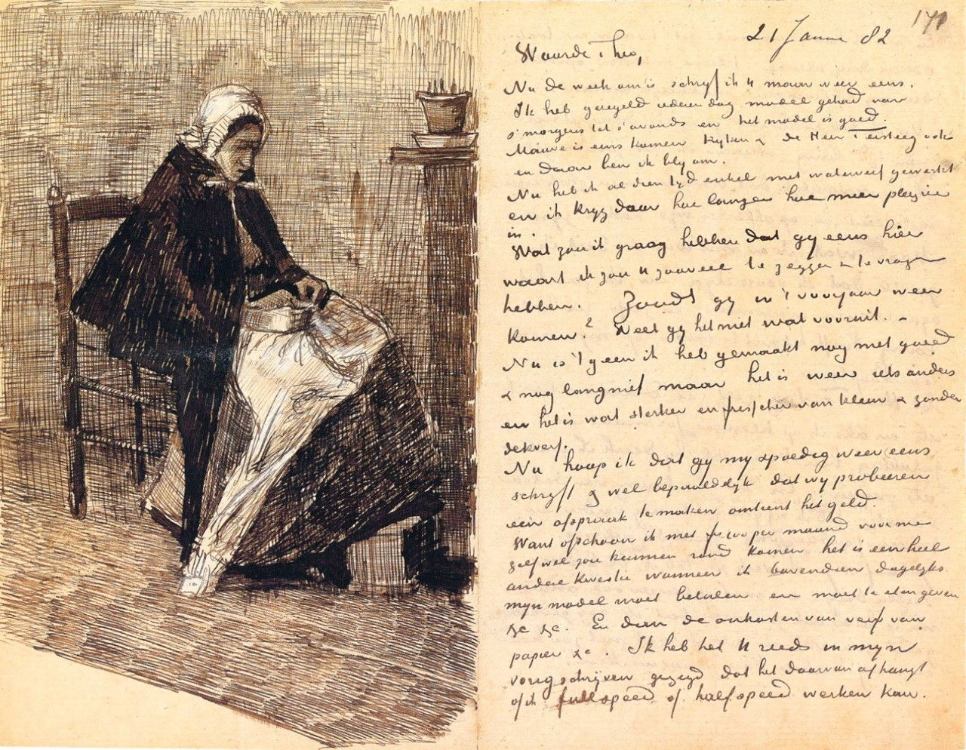 171
21 Januar 82
Waarde Theo,
Nu de week om is schryf ik U maar weer eens.
Ik heb geregeld iederen dag model gehad van
s'morgens tot s'avonds en het model is goed.
Mauve is eens komen kyken & de Heer Tersteeg ook
en daar ben ik bly om.
Nu heb ik al dien tyd enkel met waterverf gewerkt
en ik kryg daar hoe langer hoe meer pleizier
in.
Wat zou ik graag hebben dat gy eens hier
waart ik zou U zooveel te zeggen & te vragen
hebben. Zoudt gy in 't voorjaar weer
komen? Weet gy het niet wat vooruit. –
Nu is 't geen ik heb gemaakt nog niet goed
& nog lang niet maar het is weer iets anders
en het is wat sterker en frisscher van kleur & zonder
dekverf.
Nu hoop ik dat gy my spoedig weer eens
schryft & wel bepaaldelyk dat wy probeeren
een afspraak te maken omtrent het geld.
Want ofschoon ik met fr 100 per maand voor me
zelf wel zou kunnen rond komen het is een heel
andere kwestie wanneer ik bovendien dagelyks
myn model moet betalen en moet te eten geven
&c &c. En dan de onkosten van verf van
papier &c. Ik heb het U reeds in myn
vorig schrijven gezegd dat het daarvan afhangt
of ik full speed of half speed werken kan.